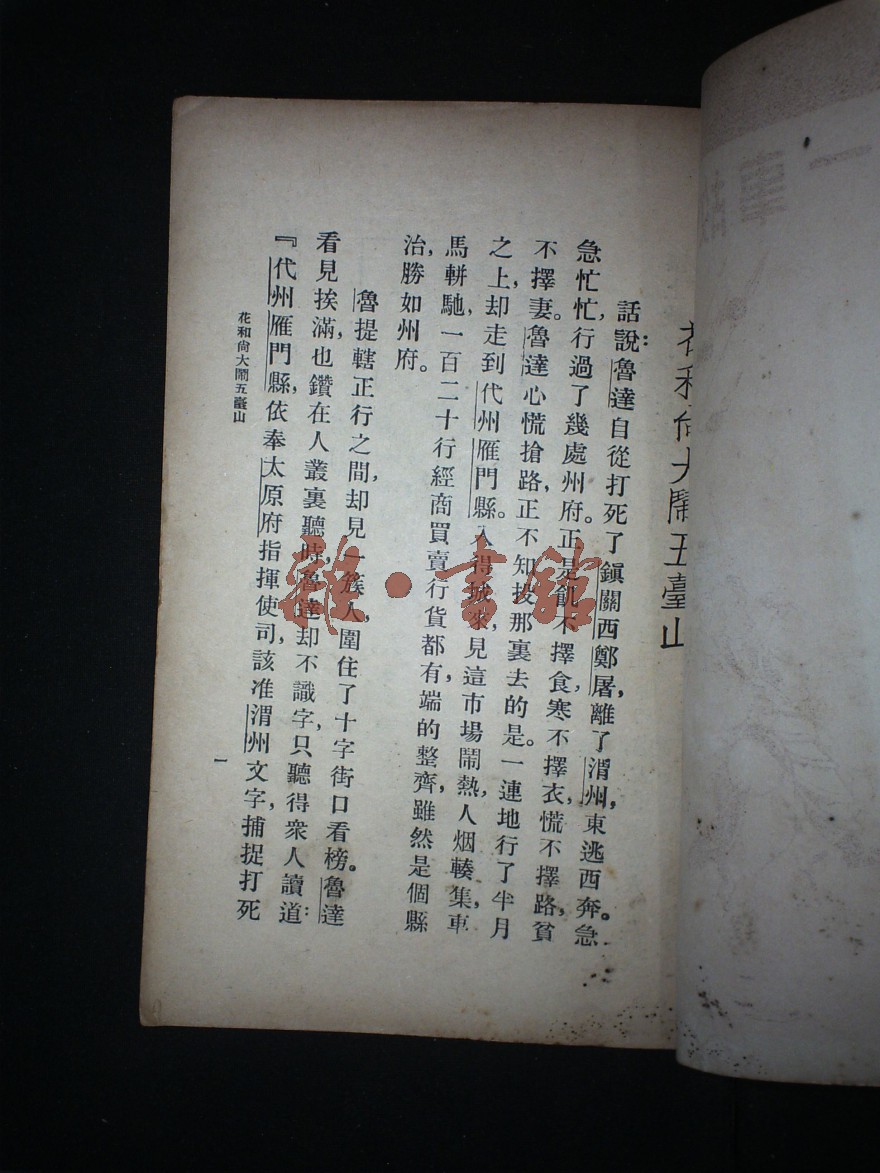 花和尙大鬧五臺山
話說：魯達自從打死了鎭關西鄭屠，離了渭州，東逃西奔。急
急忙忙，行過了幾處州府。正是飢不擇食，寒不擇衣，慌不擇路，貧
不擇妻。魯達心慌搶路，正不知投那裏去的是。一連地行了半月
之上，却走到代州雁門縣。入得城來，見這市場鬧熱，人烟輳集，車
馬軿馳，一百二十行經商買賣行貨都有，端的整齊，雖然是個縣
治，勝如州府。
魯提轄正行之間，却見一簇人，圍住了十字街口看榜。魯達
看見挨滿，也鑽在人叢裏聽時，魯達却不識字，只聽得衆人讀道：
『代州雁門縣，依奉太原府指揮使司，該准渭州文字，捕捉打死
花和尙大鬧五臺山
一
雜·書館